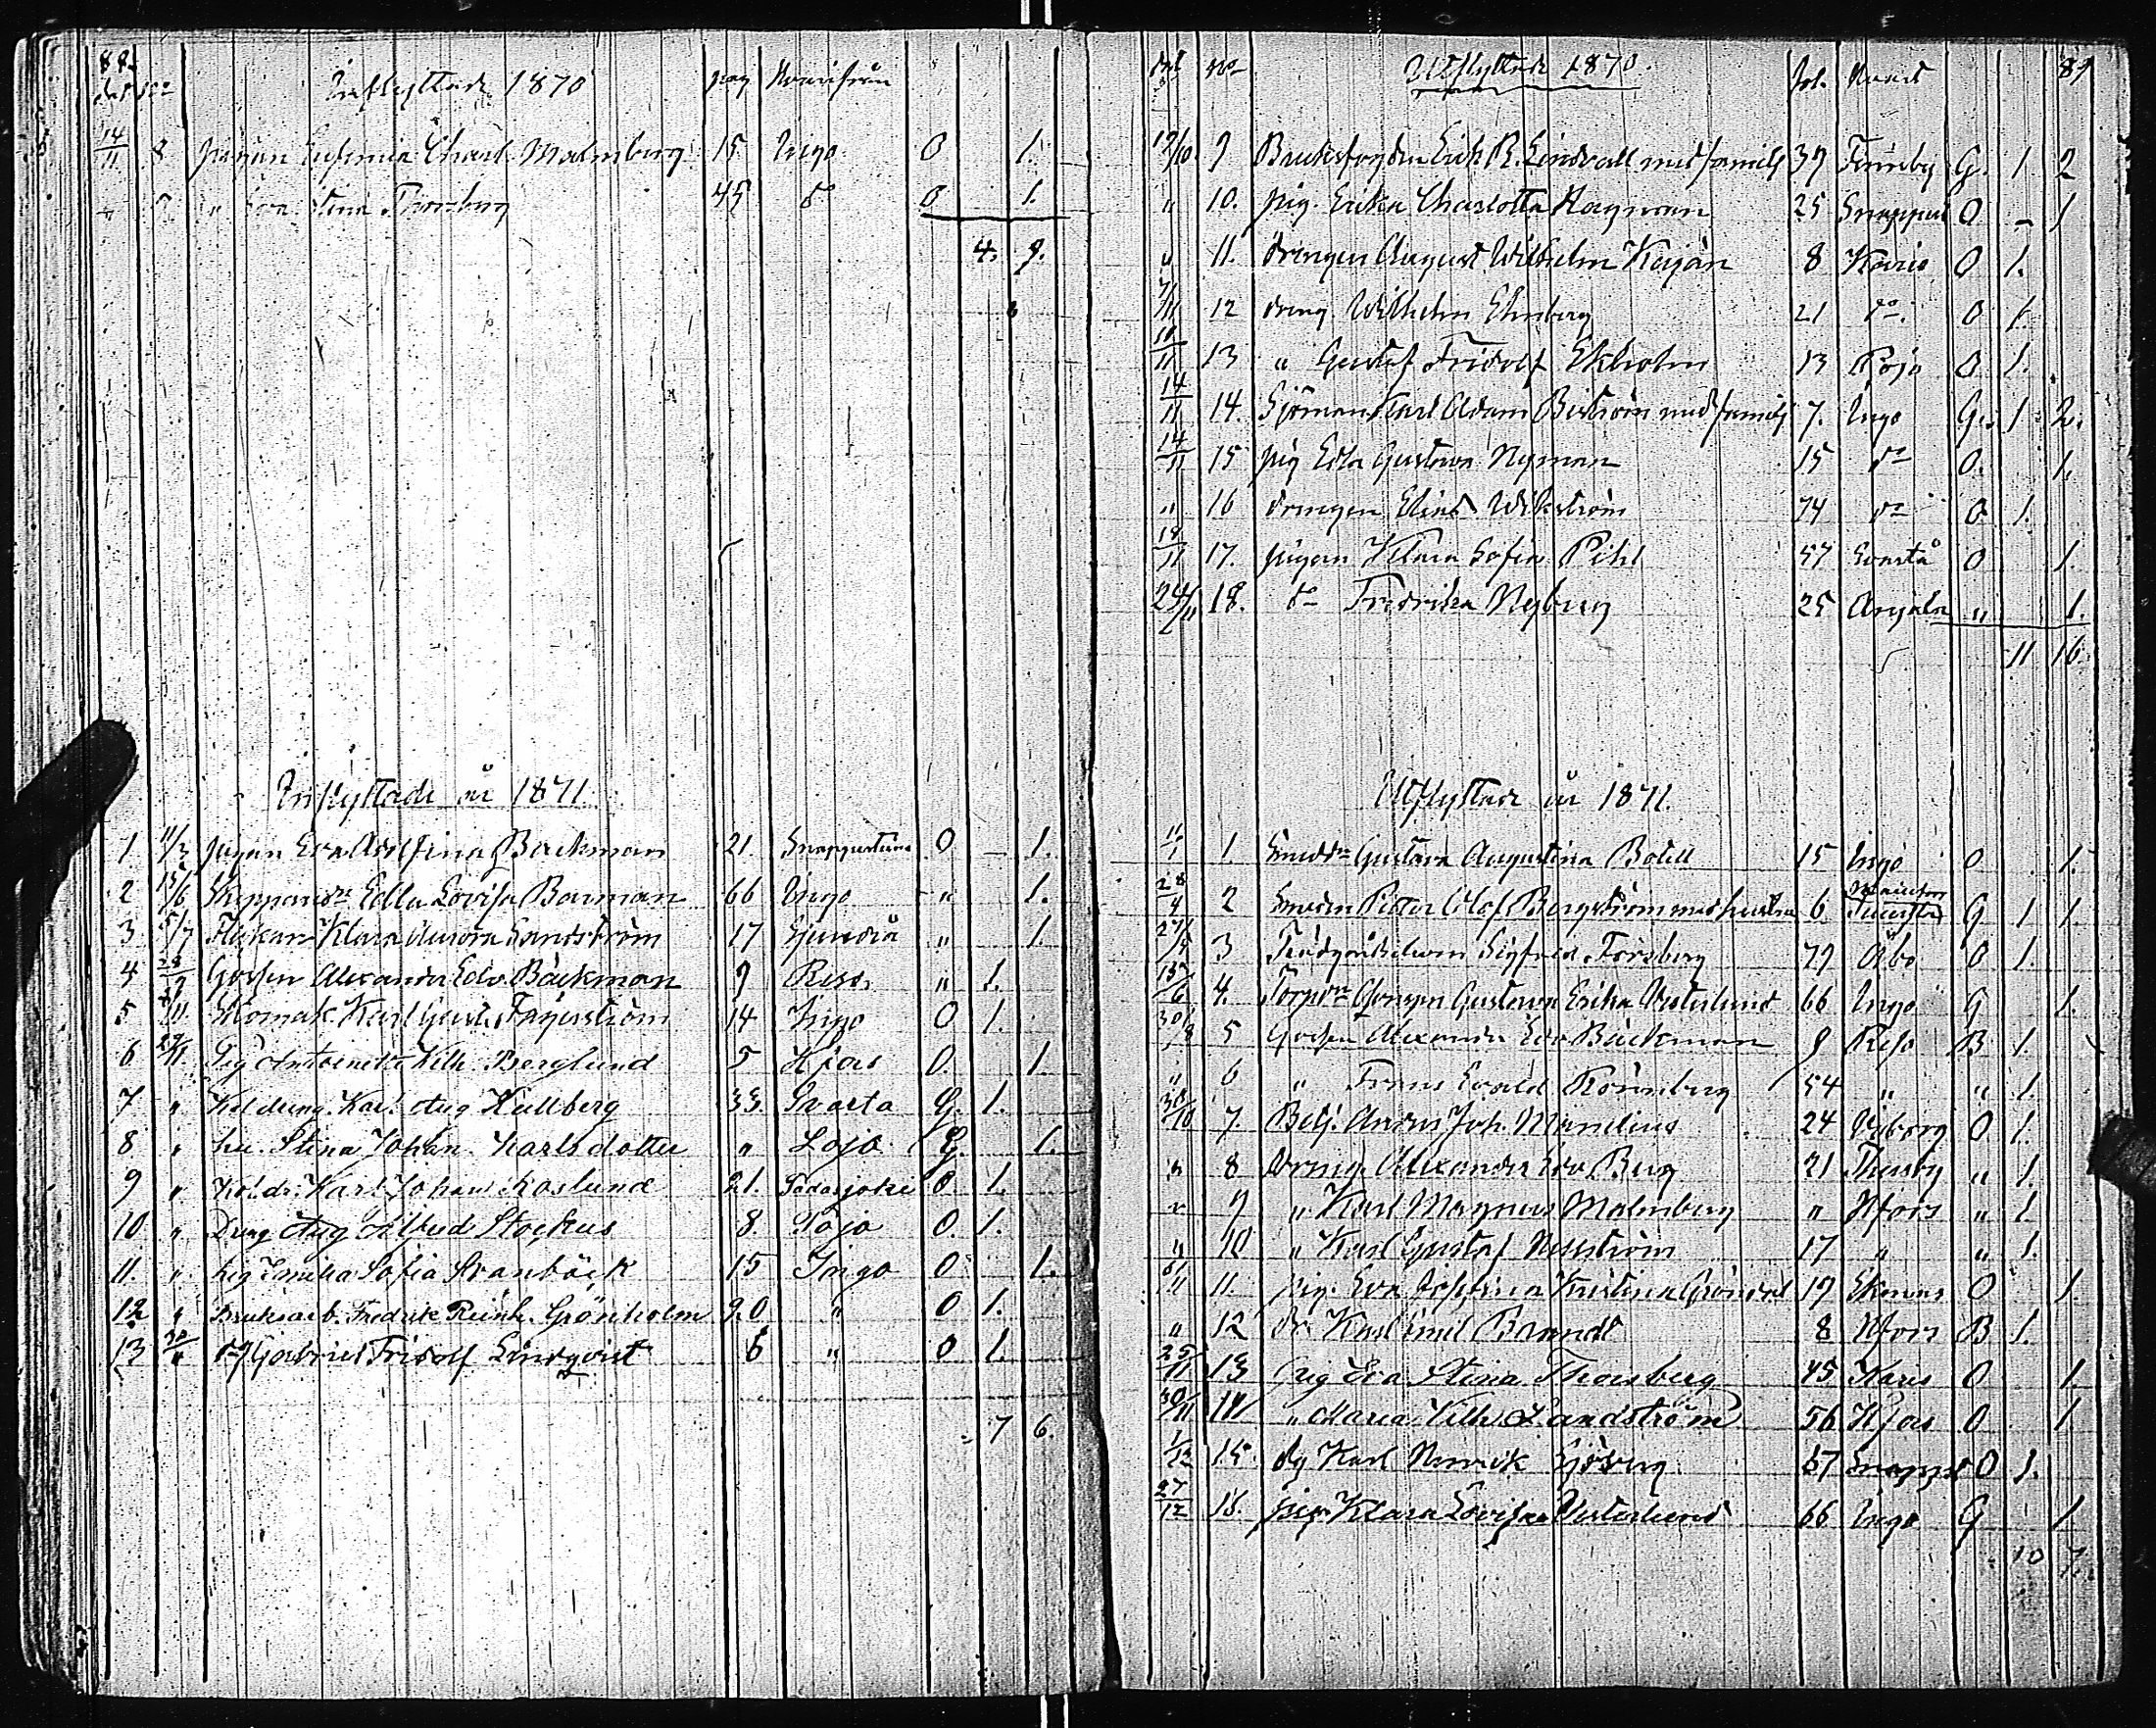 88.
dat No Inflyttade 1870 pag Hvarifrån
14/11 8 pigan Eufemia Charl. Malmberg 15 Ingo O 1.
" " Eva Stina Thorsberg 45 do O 1.
4. 9.
Inflyttade år 1871.
1 11/3 pigan Eva Adolfina Backman 21. Snappertuna O 1.
2 15/6 Skeppareds Edla Lovisa Boman 66 Ingo " 1.
3 5/7 Flickan Klara Aurora Sandström 17 Sjundeå " 1.
4 28/9 Gossen Alexander Edv. Bäckman 9 Reso " 1.
5 8/11 Skomak. Karl Gust. Fagerström 14 Ingo O 1.
6 29/11 Pig Antoinette Vilh. Berglund 5 Hfors O. 1
7 " Karl Aug Kullberg 33. Svarta G. 1.
8 " hu. Stina Johan. Karlsdotter " Lojo G. 1.
9 " Karl Johan Roslund 21. Padasjoki O 1.
10 " Dräng Aug Alfred Stockus 8. Pojo O. 1.
11. " pig Emilia Sofia Svanbäck 15 Ingo O 1.
12 " Bruksarb. Fredrik Reinh. Grönholm 20 " O 1.
13 30/11 dg Gabriel Fridolf Lindqvist 6 " O 1.
7 6.
89
dat No Utflyttade 1870. fol. Hvart
19/10 9 Bruksfogden Erik R. Lindvall med familj 39 Finnby G. 1 2
" 10. pig. Erika Charlotta Hagman 25 Snappert O - 1
" 11. drängen August Wilhelm Kajan 8 Karis O 1.
7/11 12 dräng Wilhelm Ehnberg 21 do. O 1.
10/11 13 " Gustaf Fridolf Ekholm 13 Pojo O 1.
14/11 14. Sjöman Karl Adam Biström med familj 7. Ingo G. 1 2.
14/11 15 pig Edla Gustava Nyman 15 do O. 1.
" 16 drängen Elias Wikström 74 do O 1.
18/11 17. pigan Klara Sofia Pihl 57 Svartå O 1.
24/11 18. do Fredrika Nyberg 25 Anjala " 1.
11 16.
Utflyttade år 1871.
11/1 1 Gustava Augustina Bolell 15 Ingo O 1.
28/4 2 Smeden Petter Olof Bergström med hustru 6 G 1 1
3 Sigfrid Forsberg 79 Åbo O 1.
15/6 4. Gustava Erika Vesterlund 66 Ingo G 1.
30/8 5 Gossen Alexander Edv Bäckman 9 Reso B 1.
" 6 " Frans Evald Rönnberg 54 " " 1.
30/10 7. Betj. Anders Joh. Mandelius 24 Viborg O 1.
" 8 dräng Alexander Edv. Berg 21 Thessby " 1.
" 9 " Karl Magnus Malmberg " Hfors " 1.
" 10 " Karl Gustaf 17 " " 1.
8/11 11. pig. Eva Josefina Kristina Gröndal 19 Ekenäs O 1.
" 12 dr. Karl Emil Brandt 8 Hfors B 1.
25/11 13 pig Eva Stina Thorsberg 45 Karis O 1.
30/11 14 " Maria Vilh. Sandström 56 Hfors O 1
1/12 15. dg Karl Henrik Sjöberg 67 Snappt O 1.
27/12 16. pig. Klara Lovisa Vesterlund 66 Ingo G 1
10 7.